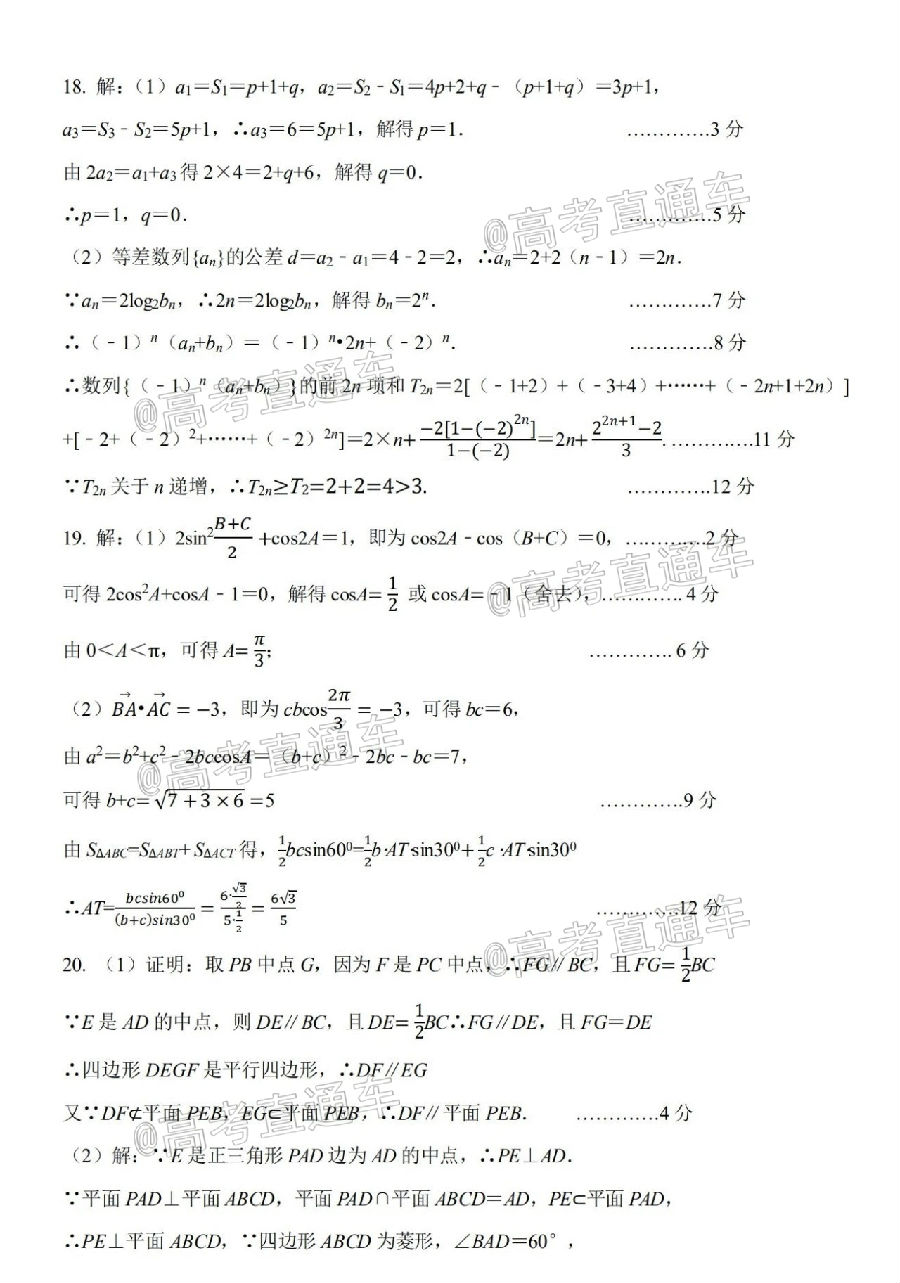 18. 解：（1）a₁＝S₁＝p+1+q，a₂＝S₂﹣S₁＝4p+2+q﹣（p+1+q）＝3p+1，
a₃＝S₃﹣S₂＝5p+1，∴a₃＝6＝5p+1，解得 p＝1． …………3 分
由 2a₂＝a₁+a₃ 得 2×4＝2+q+6，解得 q＝0．
∴p＝1，q＝0． …………5 分
@高考直通车
（2）等差数列{aₙ}的公差 d＝a₂﹣a₁＝4﹣2＝2，∴aₙ＝2+2（n﹣1）＝2n．
∵aₙ＝2log₂bₙ，∴2n＝2log₂bₙ，解得 bₙ＝2ⁿ． …………7 分
∴（﹣1）ⁿ（aₙ+bₙ）＝（﹣1）ⁿ•2n+（﹣2）ⁿ． …………8 分
∴数列{（﹣1）ⁿ（aₙ+bₙ）}的前 2n 项和 T₂ₙ＝2[（﹣1+2）+（﹣3+4）+……+（﹣2n+1+2n）]
@高考直通车
+[﹣2+（﹣2）²+……+（﹣2）²ⁿ]＝2×n+\frac{−2[1−(−2)^{2n}]}{1−(−2)}＝2n+\frac{2^{2n+1}−2}{3}. …………11 分
∵T₂ₙ 关于 n 递增，∴T₂ₙ≥T₂=2+2=4>3. …………12 分
19. 解：（1）2sin²\frac{B+C}{2} +cos2A＝1，即为 cos2A﹣cos（B+C）＝0，…………2 分
可得 2cos²A+cosA﹣1＝0，解得 cosA= \frac{1}{2} 或 cosA=﹣1（舍去），………… 4 分
@高考直通车
由 0＜A＜π，可得 A= \frac{π}{3}; ………… 6 分
（2）\vec{BA}•\vec{AC} = −3，即为 cbcos\frac{2π}{3} = −3，可得 bc＝6，
由 a²＝b²+c²﹣2bccosA＝（b+c）²﹣2bc﹣bc＝7，
@高考直通车
可得 b+c= \sqrt{7+3×6} =5 …………9 分
由 S_{ΔABC}=S_{ΔABT}+ S_{ΔACT} 得，\frac{1}{2}bcsin60⁰=\frac{1}{2}b·ATsin30⁰+ \frac{1}{2}c ·ATsin30⁰
∴AT=\frac{bcsin60⁰}{(b+c)sin30⁰} = \frac{6·\frac{\sqrt{3}}{2}}{5·\frac{1}{2}} = \frac{6\sqrt{3}}{5} …………12 分
@高考直通车
20. （1）证明：取 PB 中点 G，因为 F 是 PC 中点，∴FG∥BC，且 FG= \frac{1}{2}BC
∵E 是 AD 的中点，则 DE∥BC，且 DE= \frac{1}{2}BC∴FG∥DE，且 FG＝DE
∴四边形 DEGF 是平行四边形，∴DF∥EG
又∵DF⊄平面 PEB，EG⊂平面 PEB，∴DF∥平面 PEB． …………4 分
@高考直通车
（2）解：∵E 是正三角形 PAD 边为 AD 的中点，∴PE⊥AD．
∵平面 PAD⊥平面 ABCD，平面 PAD∩平面 ABCD＝AD，PE⊂平面 PAD，
∴PE⊥平面 ABCD，∵四边形 ABCD 为菱形，∠BAD＝60°，